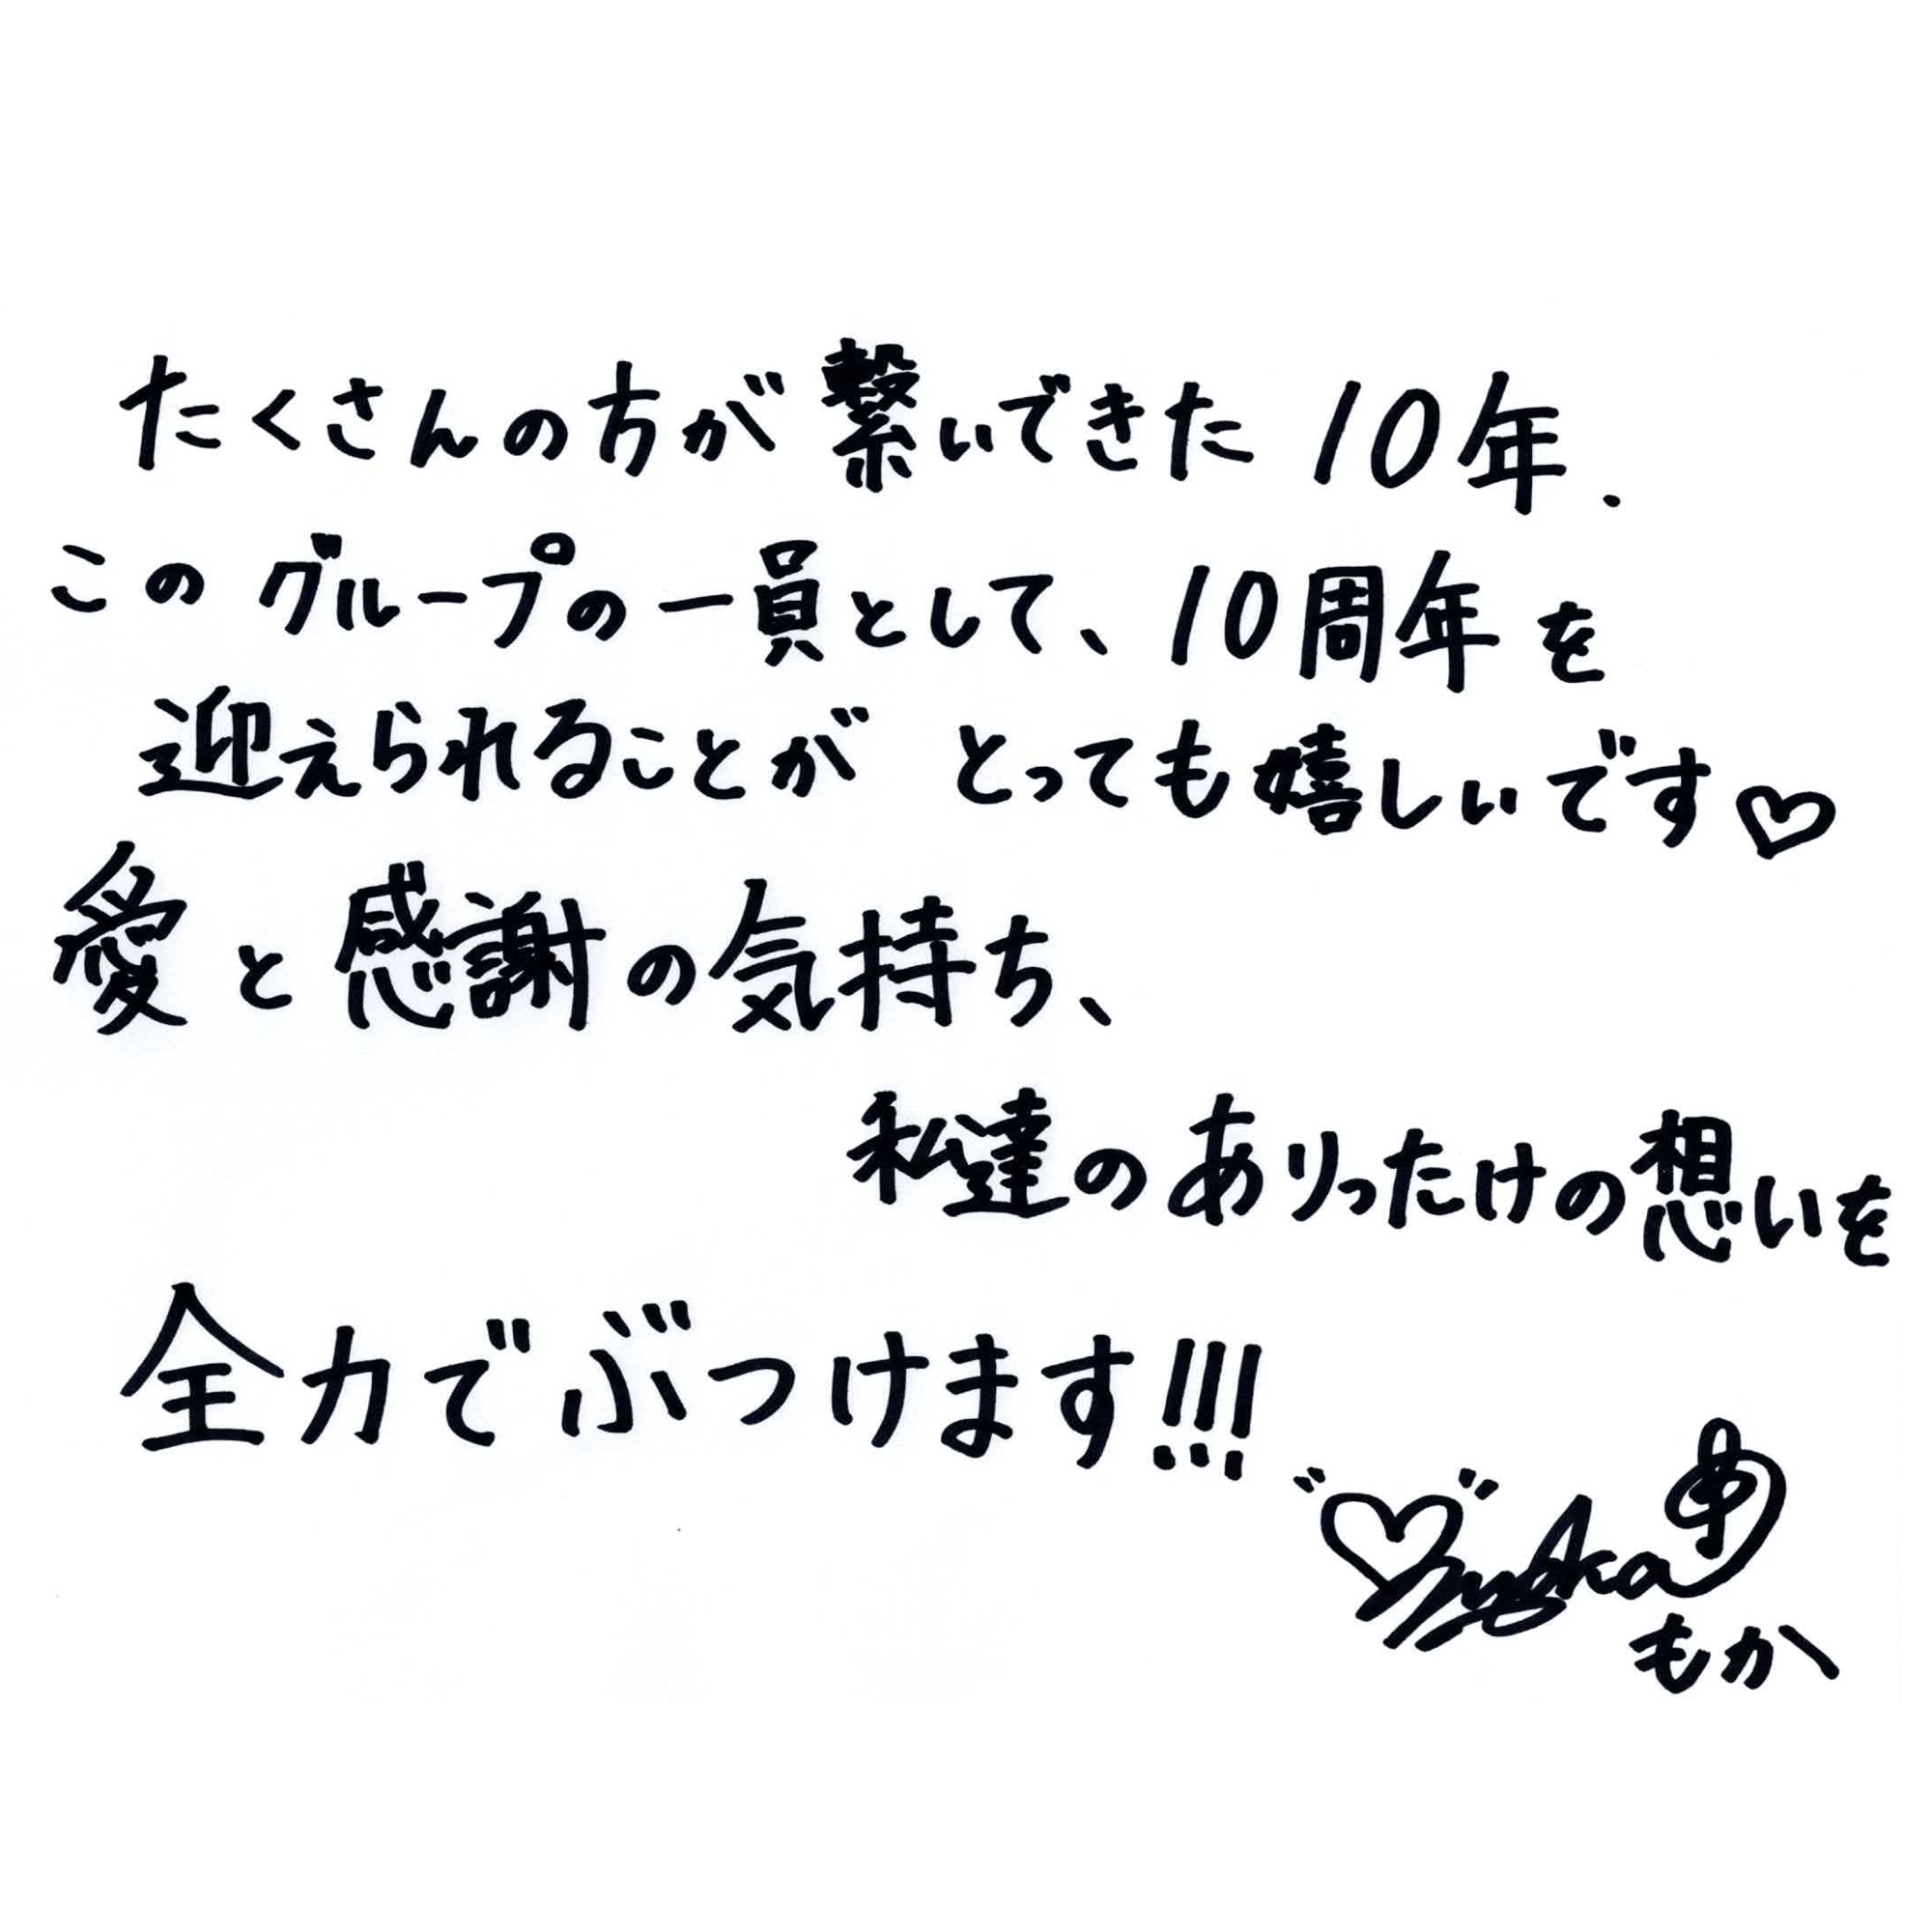 たくさんの方が繋いできた10年.
このグループの一員として、10周年を
迎えられることが とっても嬉しいです♡
愛と感謝の気持ち、
私達のありったけの想いを
全力でぶつけます!!!
♡moka
もか